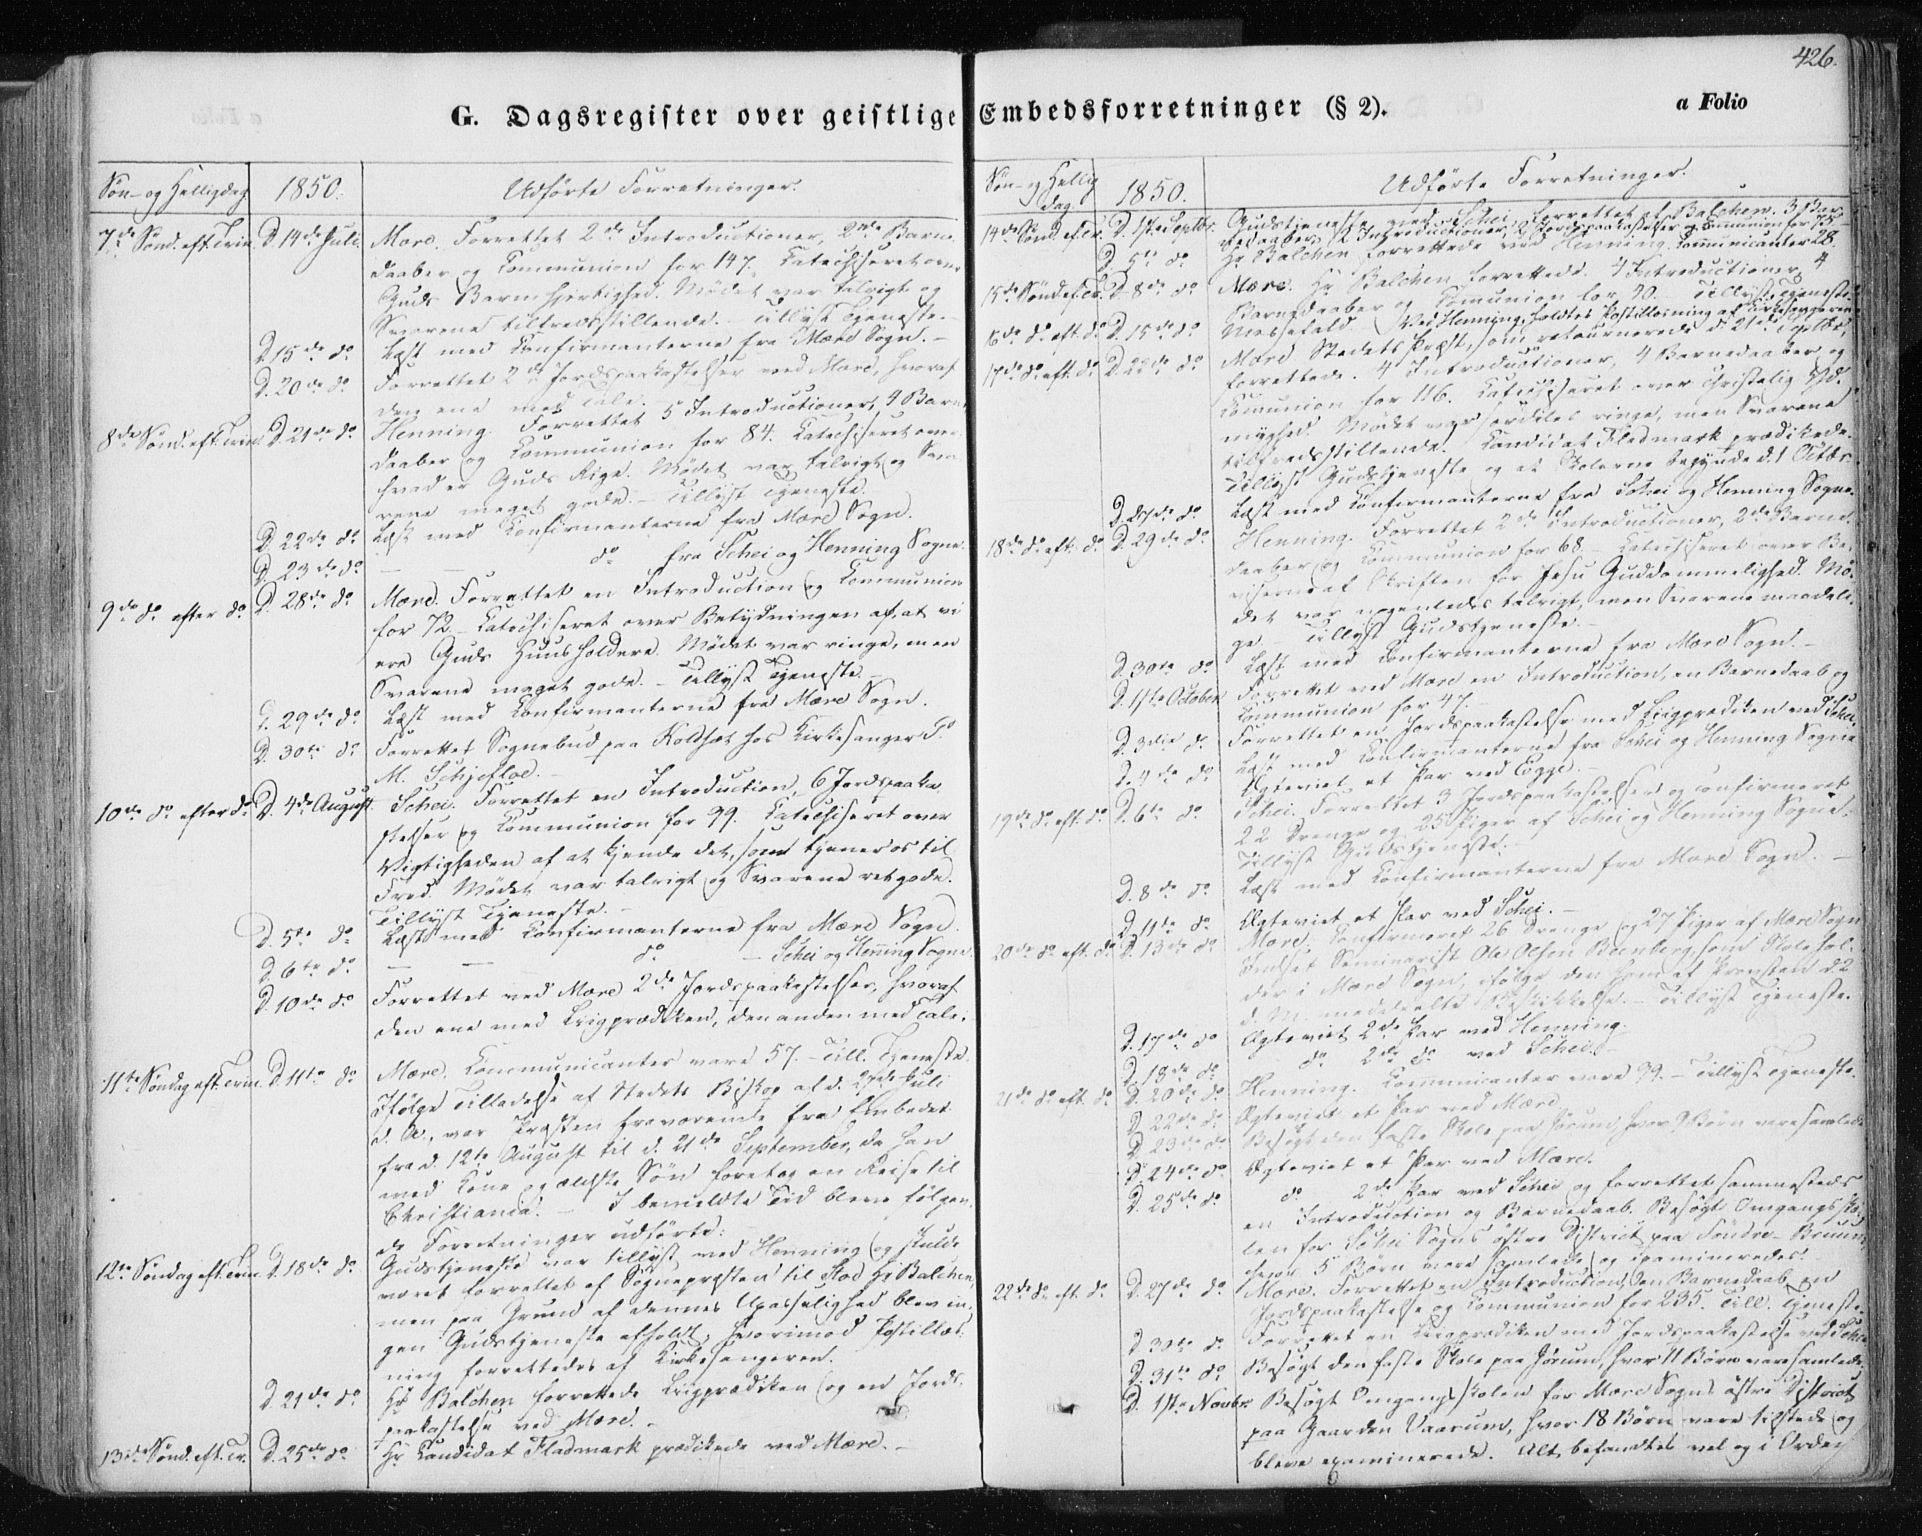 426.
G. Dagsregister over geistlige Embedsforretninger (§ 2).
a Folio
Søn- og Helligdag. 1850. Udførte Forretninger.
7de Sønd. eft. Trin. D. 14de Juli. Mære. Forrettet 2de Introductioner, 2de Barne-
daaber og Communion for 147. Catechiseret over
Guds Barmhjertighed. Mødet var talrigt og
Svarene tilfredsstillende. - Tillyst Tjeneste. -
D. 15de do Læst med Confirmanterne fra Mære Sogn. -
D. 20de do Forrettet 2de Jordspaakastelser ved Mære, hvoraf
den ene med Tale.
8de Sønd. eft. Trin. D. 21de do Henning. Forrettet 5 Introductioner, 4 Barne-
daaber og Communion for 84. Catechiseret over
hvad er Guds Rige. Mødet var talrigt og Sva-
rene meget gode. - Tillyst Tjeneste.
D. 22de do Læst med Confirmanterne fra Mære Sogn.
D. 23de do — — do fra Schei og Henning Sogne.
9de do efter do D. 28de do Mære. Forrettet en Introduction og Communion
for 72. - Catechiseret over Betydningen af, at vi
ere Guds Huusholdere. Mødet var ringe, men
Svarene meget gode. - Tillyst Tjeneste. -
D. 29de do Læst med Confirmanterne fra Mære Sogn.
D. 30te do Forrettet Sognebud paa Koldsæt hos Kirkesanger P.
M. Schjefloe. -
10de do efter do D. 4de August Schei. Forrettet en Introduction, 6 Jordspaaka-
stelser og Communion for 99. Catechiseret over
Vigtigheden af at kjende det, som tjener os til
Fred. Mødet var talrigt og Svarene ret gode.
Tillyst Tjeneste. -
D. 5te do Læst med Confirmanterne fra Mære Sogn.
D. 6te do — — do — Schei og Henning Sogne.
D. 10de do Forrettet ved Mære 2de Jordspaakastelser, hvoraf
den ene med Liigprædiken, den anden med Tale.
11te Søndag eft. Trin. D. 11te do Mære. Communicanter vare 57. - Till. Tjeneste.
Ifølge Tilladelse af Stedets Biskop af d. 29de Juli
d. A., var Præsten fraværende fra Embedet
fra d. 12te August til d. 21de September, da han
med Kone og ældste Søn foretog en Reise til
Christiania. - I bemeldte Tid bleve følgen-
de Forretninger udførte:
12te Søndag eft. Trin. D. 18de do Gudstjeneste var tillyst ved Henning og skulde
været forrettet af Sognepræsten til Stod Hr Balchen,
men paa Grund af dennes Upasselighed blev in-
gen Gudstjeneste afholdt, hvorimod Postillæs-
ning forrettedes af Kirkesangeren.
D. 21de do Hr Balchen forrettede Liigprædiken og en Jords-
paakastelse ved Mære. -
13de Sønd. eft. Tr. D. 25de do Hr Candidat Fladmark prædikede ved Mære. -
Søn- og Hellig
dag. 1850. Udførte Forretninger.
14de Sønd. ef. Tr. D. 1ste Septbr. Gudstjeneste ved Schei forrettet af Balchen. 3 Bar-
nedaaber, 2 Introductioner, 2 Jordspaakastelser og Communion for 75
D. 5te do Hr Balchen forrettede ved Henning. Communicanter 28.
15de Sønd ef. Tr. D. 8de do Mære. Hr Balchen forrettede. 4 Introductioner, 4
Barnedaaber og Communion for 90. - Tillyst Tjeneste.
16de do eft. do D. 15de do Messefald. (Ved Henning holdtes Postillæsning af Kirkesangeren.
17de do eft. do D. 22de do Mære Stedets Præst, som retournerede d. 21de Septbr,
forrettede. 4 Introductioner, 4 Barnedaaber og
Communion for 116. Catechiseret over christelig Yd-
myghed. Mødet var særdeles ringe, men Svarene
tilfredsstillende. Candidat Fladmark prædikede.
Tillyst Gudstjeneste og at Skolerne begynde d. 1 Octbr.
D. 27de do Læst med Confirmanterne fra Schei og Henning Sogne.
18de do eft. do D. 29de do Henning. Forrettet 2de Introductioner, 2de Barne-
daaber og Communion for 68. - Catechiseret over Be-
viserne af Skriften for Jesu Guddommelighed. Mø-
det var nogenledes talrigt, men Svarene maadeli-
ge. - Tillyst Gudstjeneste. -
D. 30te do Læst med Confirmanterne fra Mære Sogn. -
D. 1ste October Forrettet ved Mære en Introduction, en Barnedaab og
Communion for 47. -
D. 3die do Forrettet en Jordspaakastelse med Liigprædiken ved Schei.
D. 4de do Læst med Confirmanterne fra Schei og Henning Sogne
Ægteviet et Par ved Egge. -
19de do eft. do D. 6te do Schei. Forrettet 3 Jordspaakastelser og confirmeret
22 Drenge og 25 Piger af Schei og Henning Sogne.
Tillyst Gudstjeneste. -
D. 8de do Læst med Confirmanterne fra Mære Sogn. -
D. 11te do Ægteviet et Par ved Schei. -
20de do eft. do D. 13de do Mære. Confirmeret 26 Drenge og 27 Piger af Mære Sogn
Indsat Seminarist Ole Olsen Beenberg som Skolehol-
der i Mære Sogn, ifølge den ham af Provsten d. 2
d. M. meddeelte Beskikkelse. - Tillyst Tjeneste.
D. 17de do Ægteviet 2de Par ved Henning.
D. 18de do do 2de do ved Schei. -
21de do eft. do D. 20de do Henning. Communicanter vare 99. - Tillyst Tjeneste.
D. 22de do Ægteviet et Par ved Mære
D. 23de do Besøgt den faste Skole paa Jørum, hvor 9 Børn vare samlede.
D. 24de do Ægteviet et Par ved Mære.
D. 25de do do 2de Par ved Schei og forrettet sammesteds
en Introduction og Barnedaab. Besøgt Omgangssko-
len for Schei Sogns østre District paa Søndre Bruum,
hvor 5 Børn vare samlede og examineredes.
22de do eft. do D. 27de do Mære. Forrettet en Introduction, en Barnedaab, en
Jordspaakastelse og Communion for 235. Till. Tjeneste.
D. 30te do Forrettet en Liigprædiken med Jordspaakastelse ved Schei
D. 31te do Besøgt den faste Skole paa Jørum, hvor 11 Børn vare samlede.
D. 1ste Novbr. Besøgt Omgangsskolen for Mære Sogns østre District
paa Gaarden Vaarum, hvor 18 Børn vare tilstede og
bleve examinerede. Alt befandtes vel og i Orden